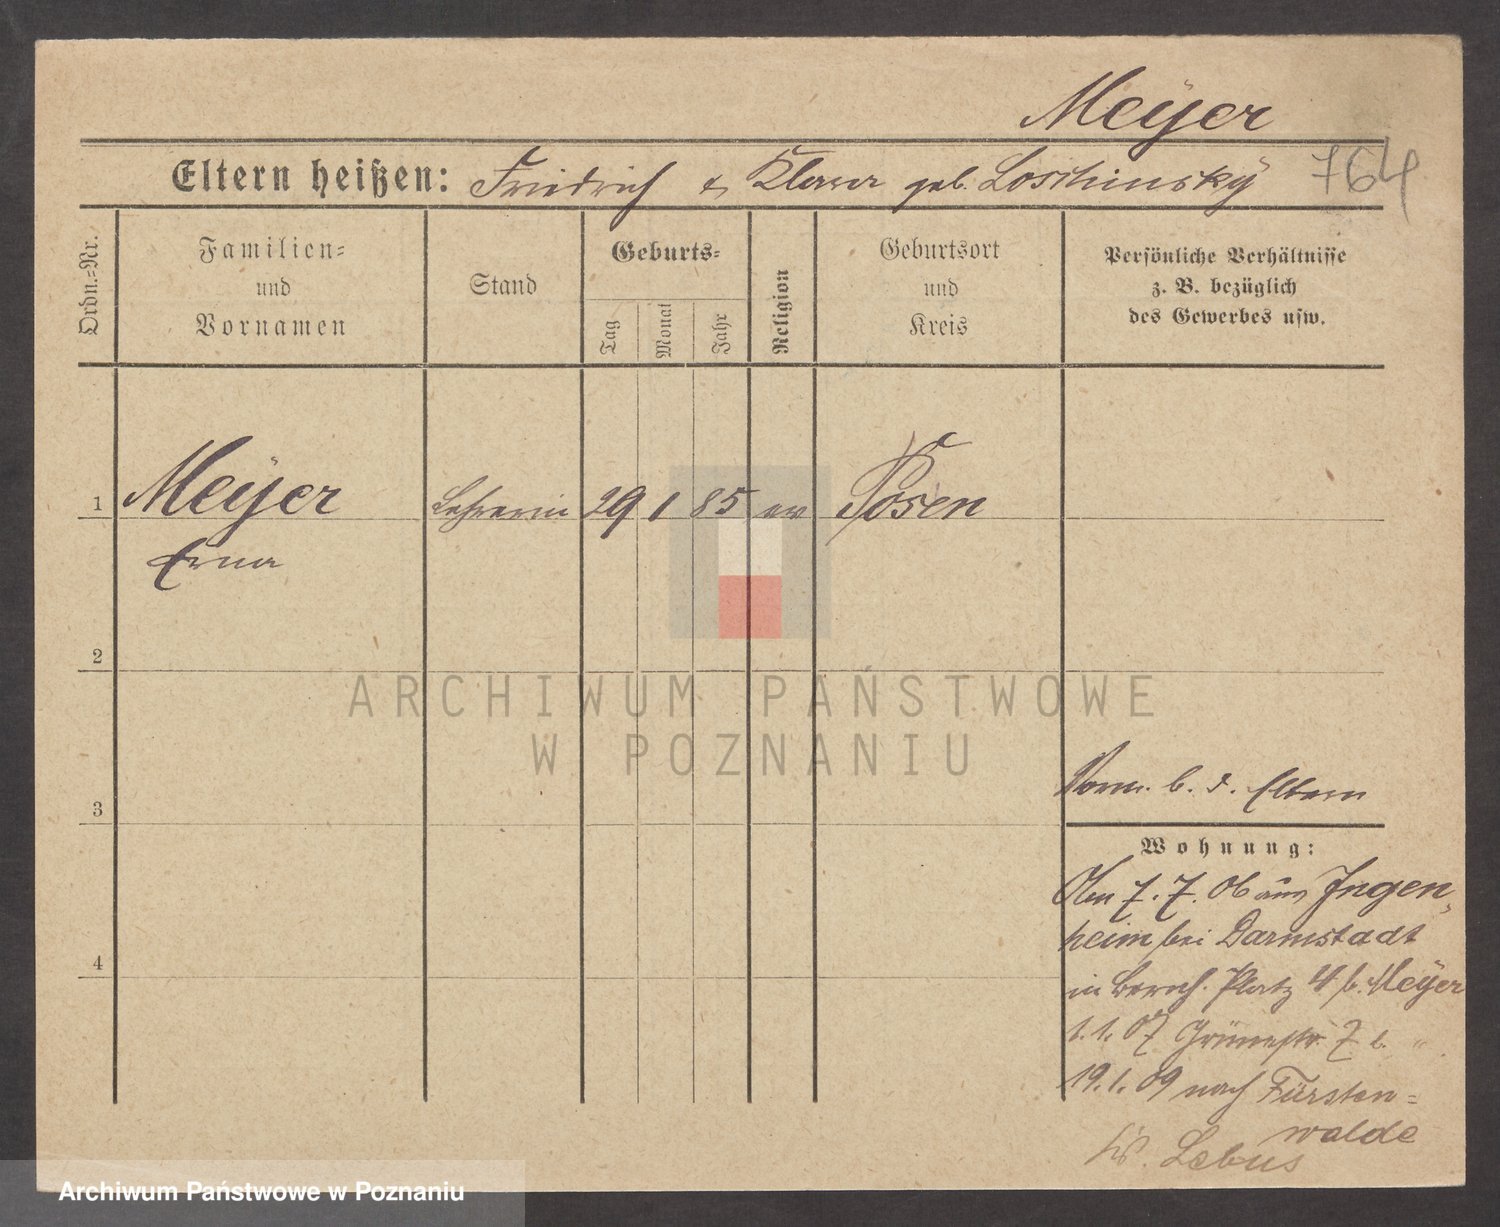 Meyer
Eltern heißen: Friedrich & Klara geb. Loschinsky 764
Ordn.=Nr.
Familien=
und
Vornamen
Stand
Geburts=
Tag
Monat
Jahr
Religion
Geburtsort
und
Kreis
Persönliche Verhältnisse
z. B. bezüglich
des Gewerbes usw.
1 Meyer Lehrerin 29 1 85 ev Posen
Erna
2
ARCHIWUM PAŃSTWOWE
W POZNANIU
Vorm. b. d. Eltern
3
Wohnung:
7. 7. 06 aus Ingen-
heim bei Darmstadt
4
in Bernh. Platz 4 b. Meyer
1. 1. 07 Grünestr. 7 b. "
19. 1. 09 nach Fürsten=
walde
Lebus
Archiwum Państwowe w Poznaniu